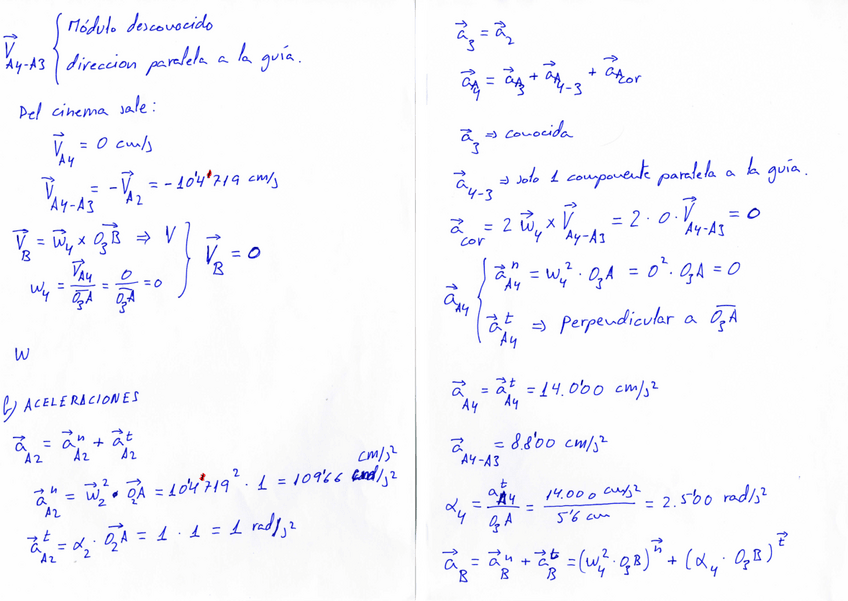 V⃗_A4-A3 { Módulo desconocido
direccion paralela a la guía.
Del cinema sale:
V⃗_A4 = 0 cm/s
V⃗_A4-A3 = -V⃗_A2 = -10'4'719 cm/s
V⃗_B = w⃗_4 x O_3B⃗ ⇒ V } V⃗_B = 0
w_4 = V⃗_A4 / O_3A = 0 / O_3A = 0
W
b) ACELERACIONES
a⃗_A2 = a⃗^n_A2 + a⃗^t_A2
cm/s²
a⃗^n_A2 = w⃗_2² · O_2A = 10'4'719² · 1 = 10966 /s²
a⃗^t_A2 = α_2 · O_2A⃗ = 1 · 1 = 1 rad/s²
a⃗_3 = a⃗_2
a⃗_A4 = a⃗_A3 + a⃗_A4-3 + a⃗_Acor
a⃗_3 ⇒ conocida
a⃗_4-3 ⇒ solo 1 componente paralela a la guía.
a⃗_cor = 2 w⃗_4 x V⃗_A4-A3 = 2 · 0 · V⃗_A4-A3 = 0
a⃗_A4 { a⃗^n_A4 = w_4² · O_3A = 0² · O_3A = 0
a⃗^t_A4 ⇒ perpendicular a O_3A
a⃗_A4 = a⃗^t_A4 = 14.0'00 cm/s²
a⃗_A4-A3 = 8.8'00 cm/s²
α_4 = a^t_A4 / O_3A = 14.000 cm/s² / 5'6 cm = 2.5'00 rad/s²
a⃗_B = a⃗^n_B + a⃗^t_B = (w_4² · O_3B)^n⃗ + (α_4 · O_3B)^t⃗